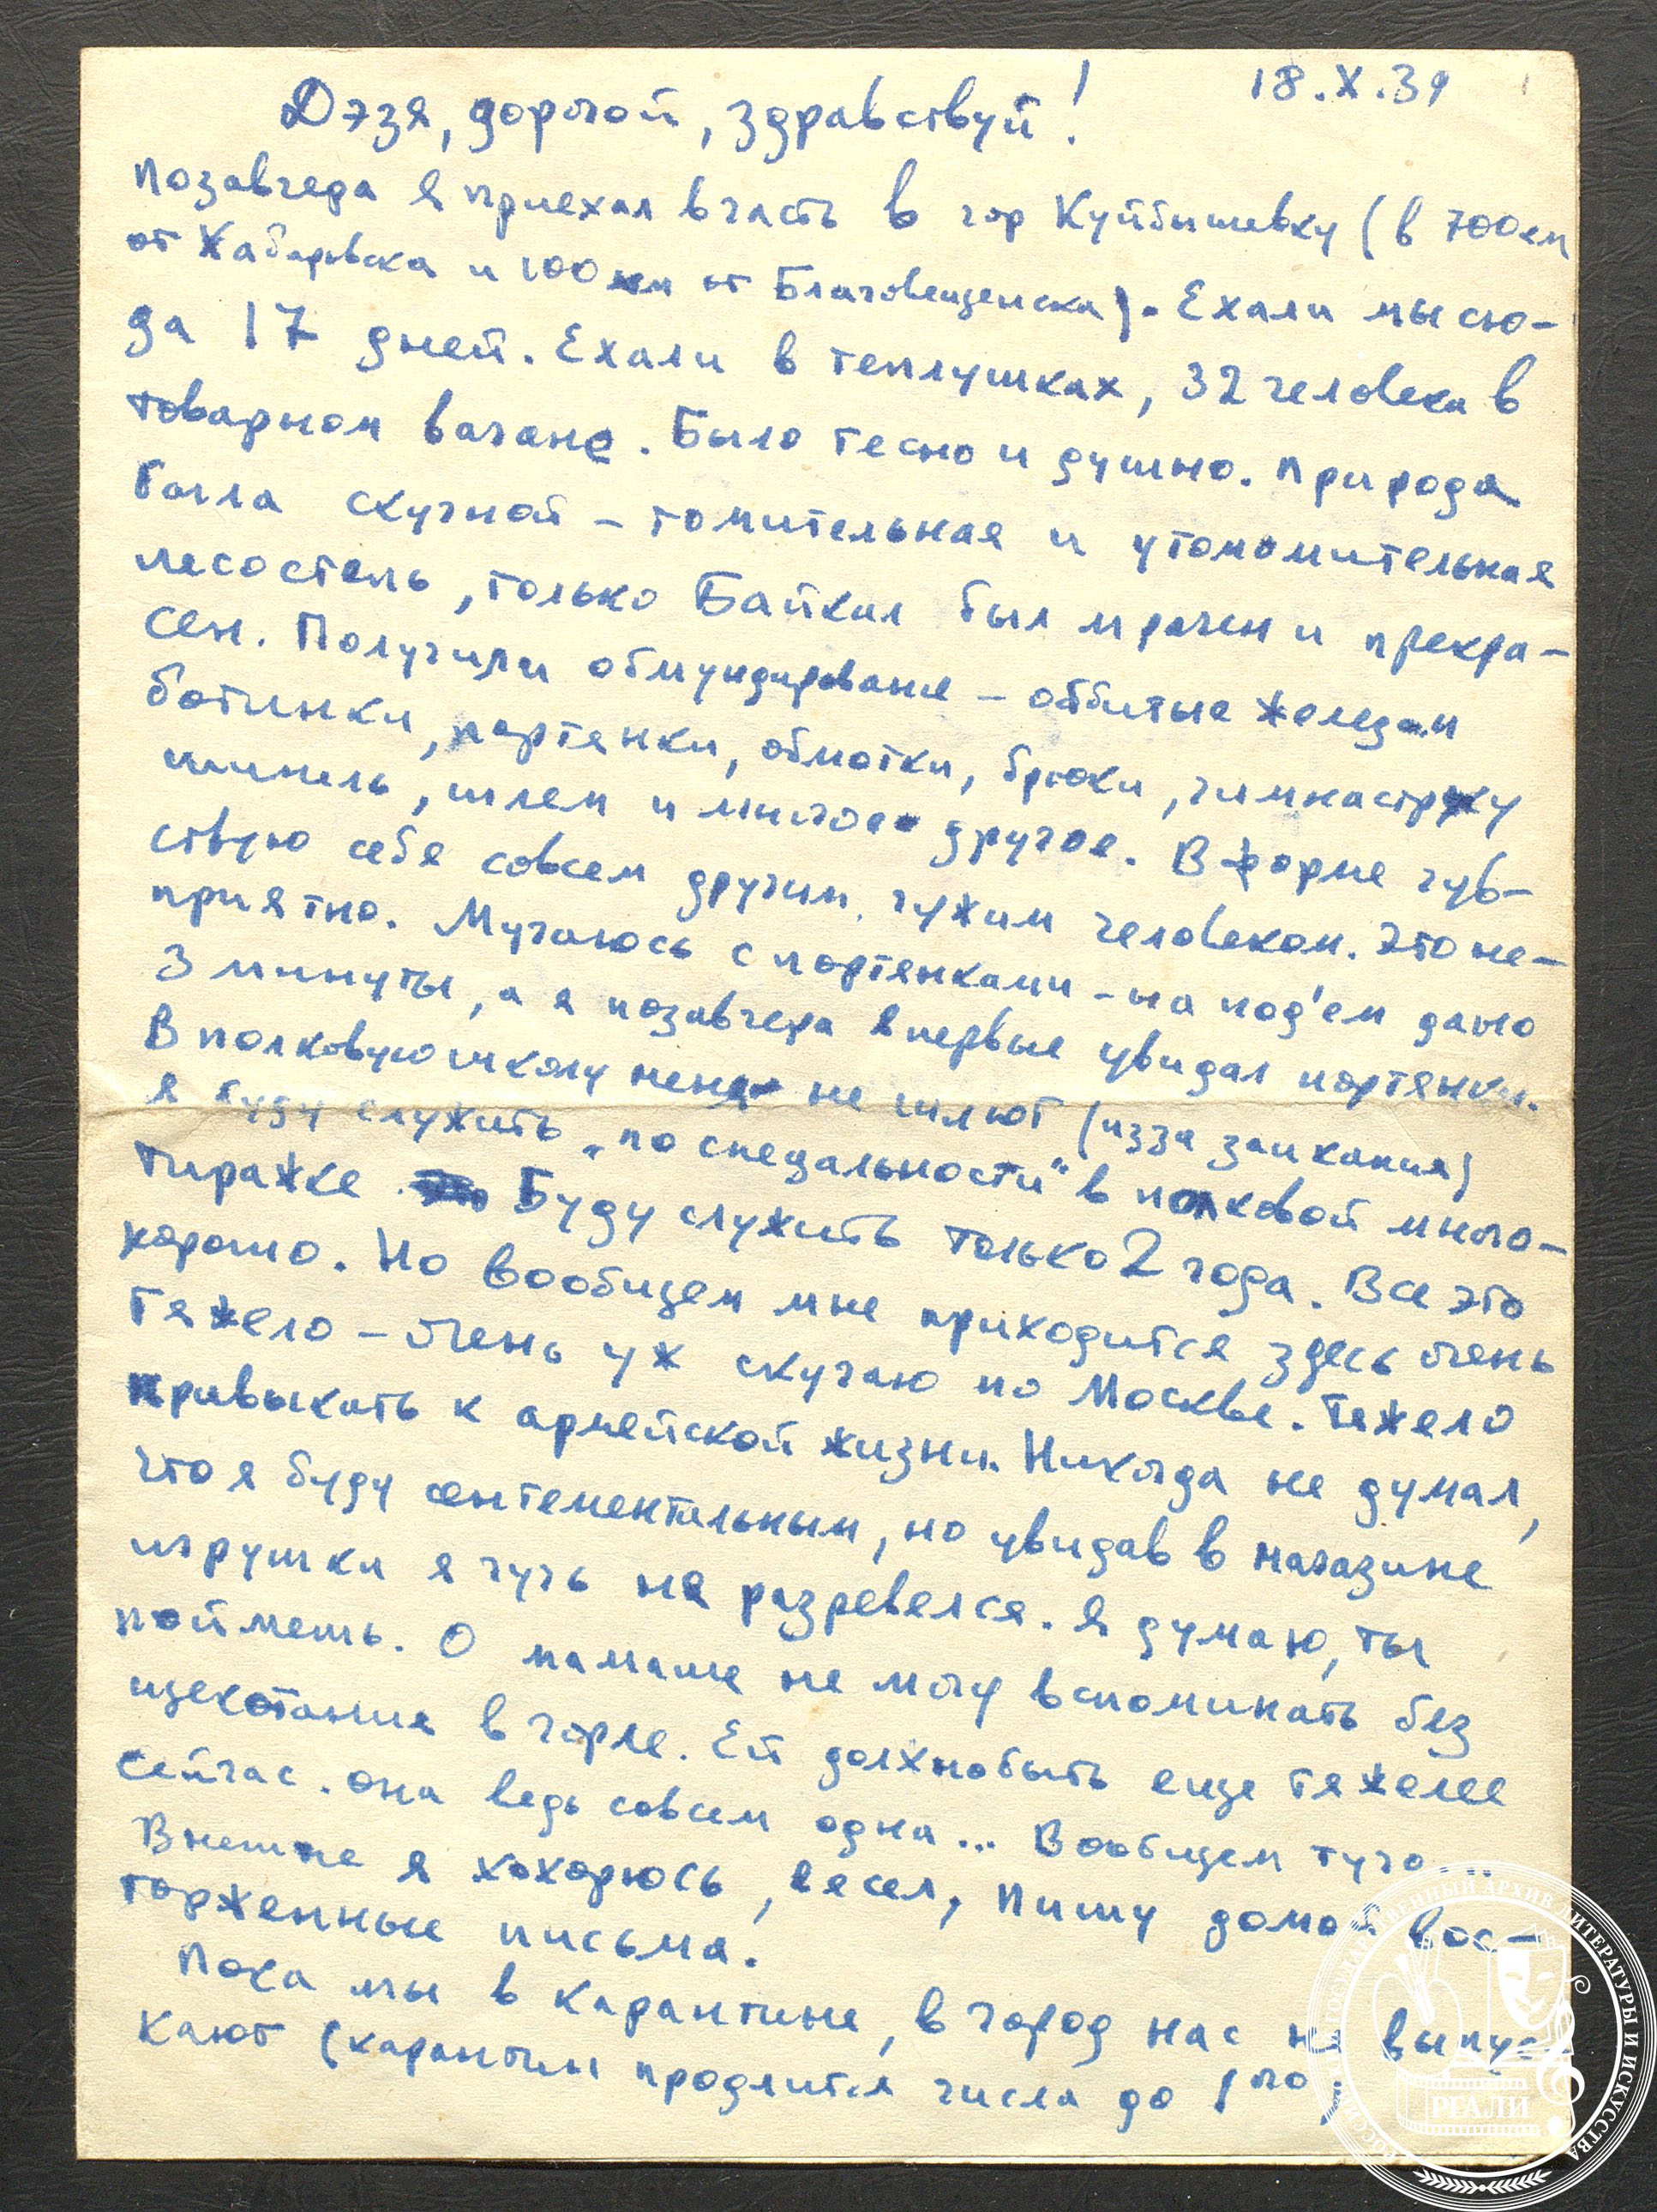 18.X.39
Дэзя, дорогой, здравствуй!
Позавчеда я приехал в часть в гор Куйбышевку (в 700км
от Хабаровска и 100 км от Благовещенска). Ехали мы сю-
да 17 дней. Ехали в теплушках, 32 человека в
товарном вагоне. Было тесно и душно. Природа
была скучной – томительная и утомомительная
лесостепь, только Байкал был мрачен и прекра-
сен. Получили обмундирование – оббитые железом
ботинки, портянки, обмотки, брюки, гимнастрку
шинель, шлем и многое другое. В форме чув-
ствую себя совсем другим, чужим человеком. Это не-
приятно. Мучаюсь с портянками – на под'ем дано
3 минуты, а я позавчера впервые увидал портянки.
В полковую школу меня не шлют (изза заикания)
я буду служить „по спецальности" в полковой много-
тиражке. Буду служить только 2 года. Все это
хорошо. Но вообщем мне приходится здесь очень
тяжело – очень уж скучаю по Москве. Тяжело
привыкать к армейской жизни. Никогда не думал,
что я буду сентементальным, но увидав в магазине
игрушки я чуть не разревелся. Я думаю, ты
поймешь. О мамаше не могу вспоминать без
щекотания в горле. Ей должнобыть еще тяжелее
сейчас. она ведь совсем одна... Вообщем туго...
Внешне я хохорюсь, весел, пишу домой вос-
торженные письма.
Пока мы в карантине, в город нас не выпус-
кают (карантин продлится числа до 1го
РОССИЙСКИЙ ГОСУДАРСТВЕННЫЙ АРХИВ ЛИТЕРАТУРЫ И ИСКУССТВА
РГАЛИ